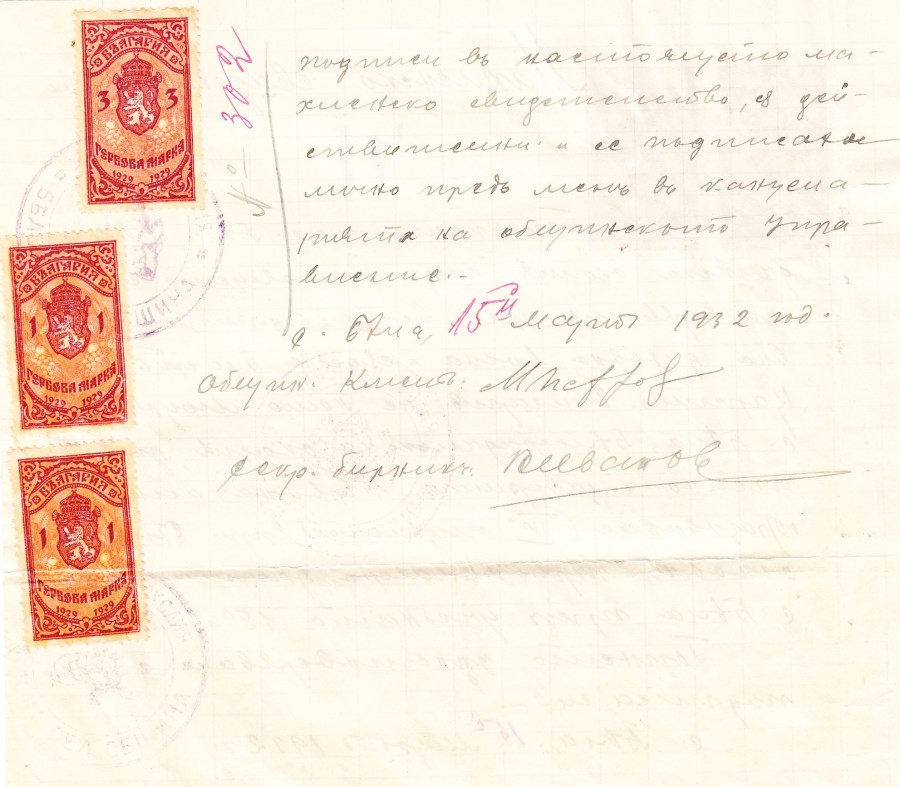 БЪЛГАРИЯ
3 3
ГЕРБОВА МАРКА
1929 1929
БЪЛГАРИЯ
1 1
ГЕРБОВА МАРКА
1929 1929
БЪЛГАРИЯ
1 1
ГЕРБОВА МАРКА
1929 1929
№ 302
подписи въ настоящето ма-
хленско свидетелство, са дей-
ствителни и се подписаха
лично предъ менъ въ канцела-
рията на общинското упра-
вление.-
с. Бѣла, 15й Мартъ 1932 год.
Общин. Кметъ:
секр. бирникъ: Иванов